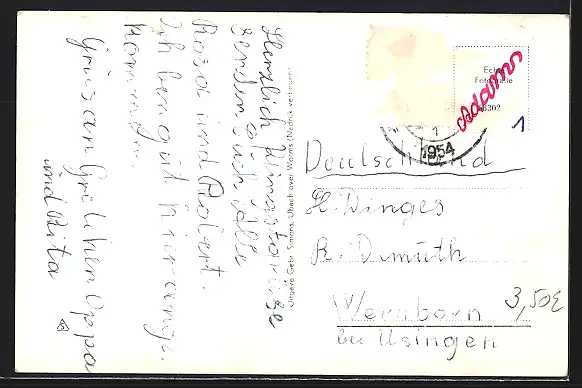 Herzlich Pfingstgrüße
senden Euch Alle
Rosa und Robert.
Ich ben gut hir ange
kommen.
Grüs an Gretchen Oppa
und Rita
Uitgave Gebr. Simons, Ubach over Worms (Nadruk verboden)
Echte
Fotografie
Adams
1954
1
Deutschland
H. Dinges
R. Demuth
Wernborn
bei Usingen
3,50£